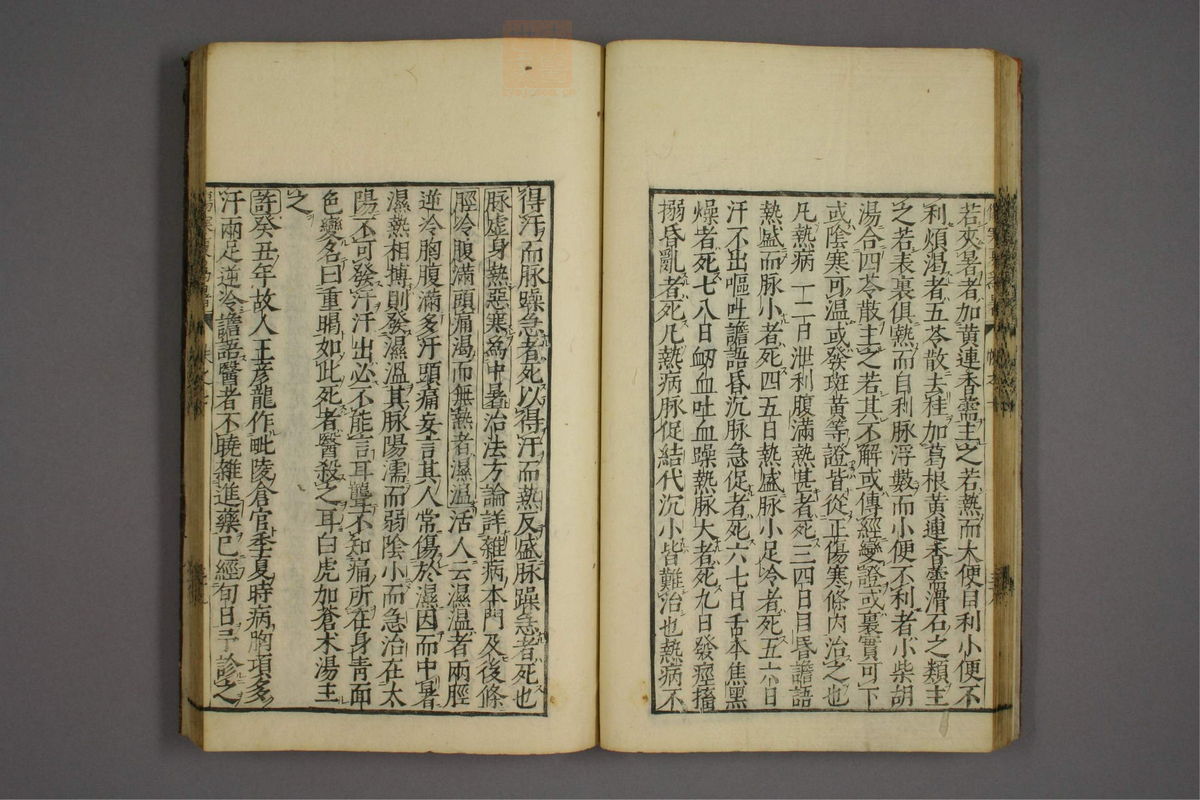 若夾暑者加黄連香薷主之若熱而大便自利小便不
利煩渴者五苓散去桂加葛根黄連香薷滑石之類主
之若表裏俱熱而自利脉浮數而小便不利者小柴胡
湯合四苓散主之若其不解或傳經變證或裏實可下
或陰寒可温或發斑黄等證皆從正傷寒條内治之也
凡熱病一二日泄利腹滿熱甚者死三四日目昏譫語
熱盛而脉小者死四五日熱盛脉小足冷者死五六日
汗不出嘔吐譫語昏沉脉急促者死六七日舌本焦黑
燥者死七八日衂血吐血躁熱脉大者死九日發痙搐
搦昏亂者死凡熱病脉促結代沉小皆難治也熱病不
得汗而脉躁急者死以得汗而熱反盛脉躁急者死也
脉虚身熱惡寒為中暑治法方論詳雜病本門及後條
脛冷腹滿頭痛渴而無熱者濕温活人云濕温者兩脛
逆冷胸腹滿多汗頭痛妄言其人常傷於濕因而中暑
濕熱相搏則發濕温其脉陽濡而弱陰小而急治在太
陽不可發汗汗出必不能言耳聾不知痛所在身青面
色變名曰重暍如此死者醫殺之耳白虎加蒼术湯主
之
許癸丑年故人王彦龍作毗陵倉官季夏時病胸項多
汗兩足逆冷譫語醫者不曉雜進藥已經旬日予診之